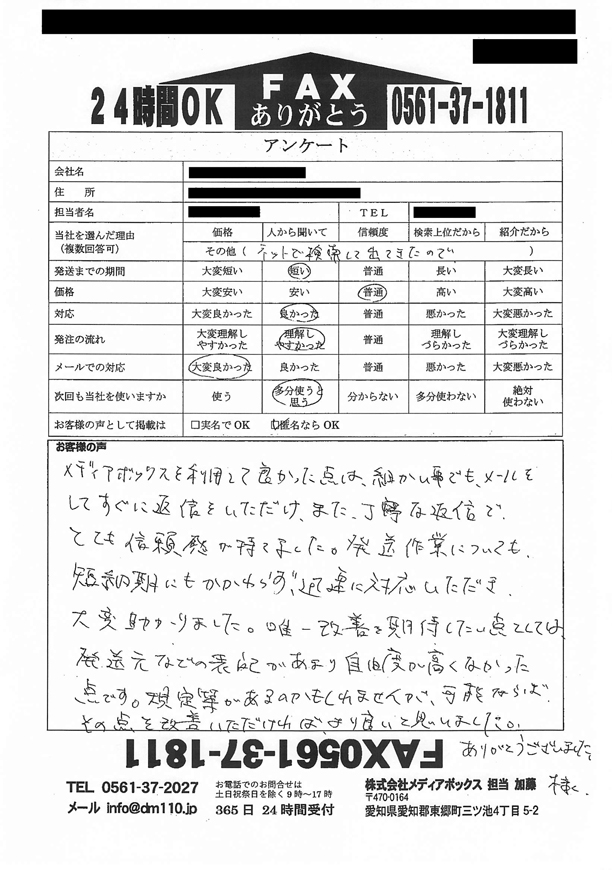 24時間OK
FAX
ありがとう
0561-37-1811
アンケート
会社名
住　所
担当者名　TEL
当社を選んだ理由
（複数回答可）
価格　人から聞いて　信頼度　検索上位だから　紹介だから
その他（ネットで検索して出てきたので）
発送までの期間　大変短い　短い　普通　長い　大変長い
価格　大変安い　安い　普通　高い　大変高い
対応　大変良かった　良かった　普通　悪かった　大変悪かった
発注の流れ　大変理解しやすかった　理解しやすかった　普通　理解しづらかった　大変理解しづらかった
メールでの対応　大変良かった　良かった　普通　悪かった　大変悪かった
次回も当社を使いますか　使う　多分使うと思う　分からない　多分使わない　絶対使わない
お客様の声として掲載は　□実名でOK　□匿名ならOK
お客様の声
メディアボックスを利用して良かった点は、細かい事でも、メールを
してすぐに返信をいただけ、また、丁寧な返信で、
とても信頼感が持てました。発送作業についても、
短納期にもかかわらず、迅速に対応いただき、
大変助かりました。唯一改善を期待したい点としては、
発送元などの表記があまり自由度が高くなかった
点です。規定等があるのかもしれませんが、可能ならば
その点を改善いただければ、より良いと思いました。
ありがとうございました
FAX0561-37-1811
TEL 0561-37-2027
メール info@dm110.jp
お電話でのお問合せは
土日祝祭日を除く9時～17時
365日24時間受付
株式会社メディアボックス 担当 加藤 様
〒470-0164
愛知県愛知郡東郷町三ツ池4丁目5-2